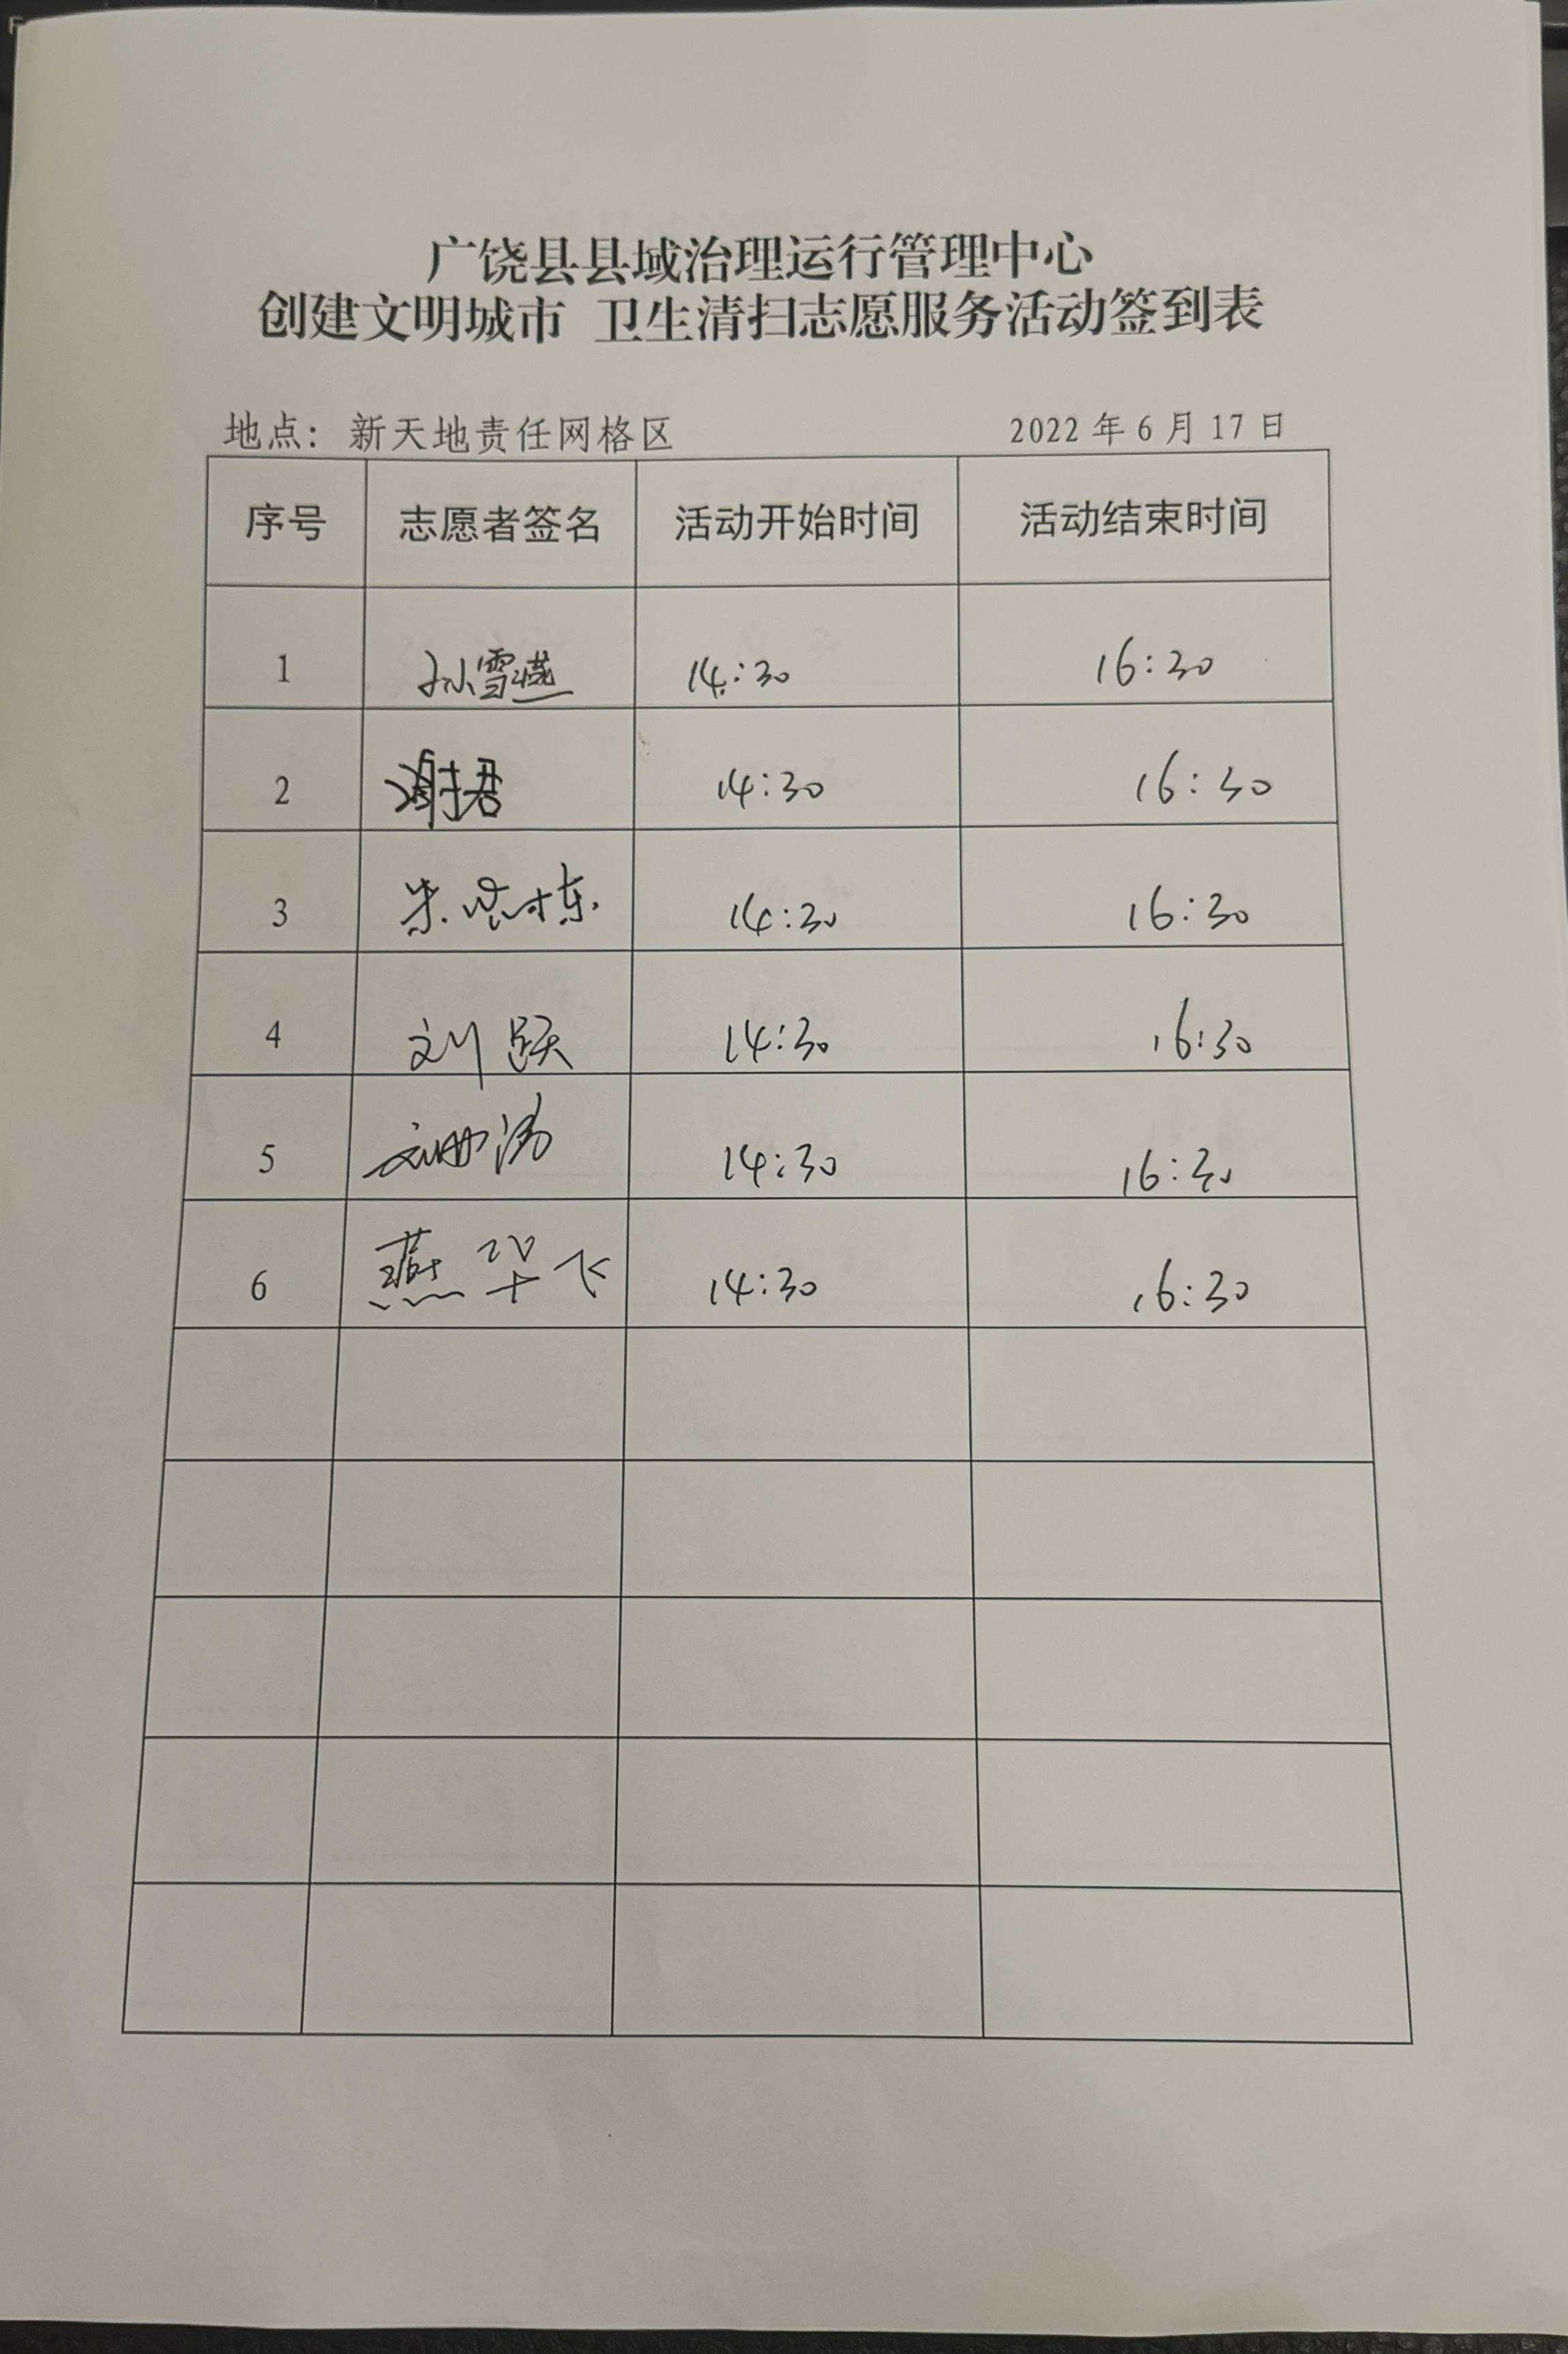 广饶县县域治理运行管理中心
创建文明城市 卫生清扫志愿服务活动签到表
地点：新天地责任网格区 2022年6月17日
序号 志愿者签名 活动开始时间 活动结束时间
1 孙雪燕 14:30 16:30
2 谢君 14:30 16:30
3 朱 栋 14:30 16:30
4 刘跃 14:30 16:30
5 刘 涛 14:30 16:30
6 燕华飞 14:30 16:30